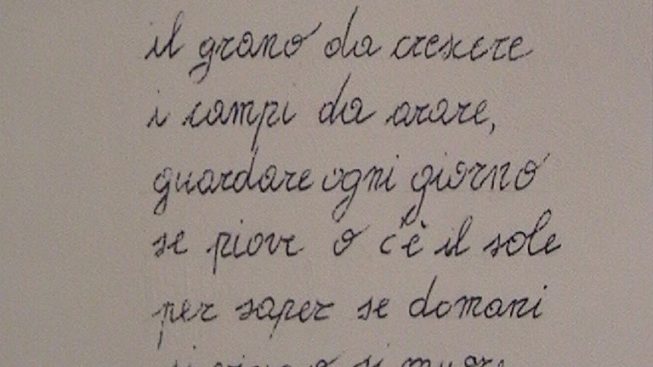 il grano da crescere
i campi da arare,
guardare ogni giorno
se piove o c'è il sole
per saper se domani
si muore